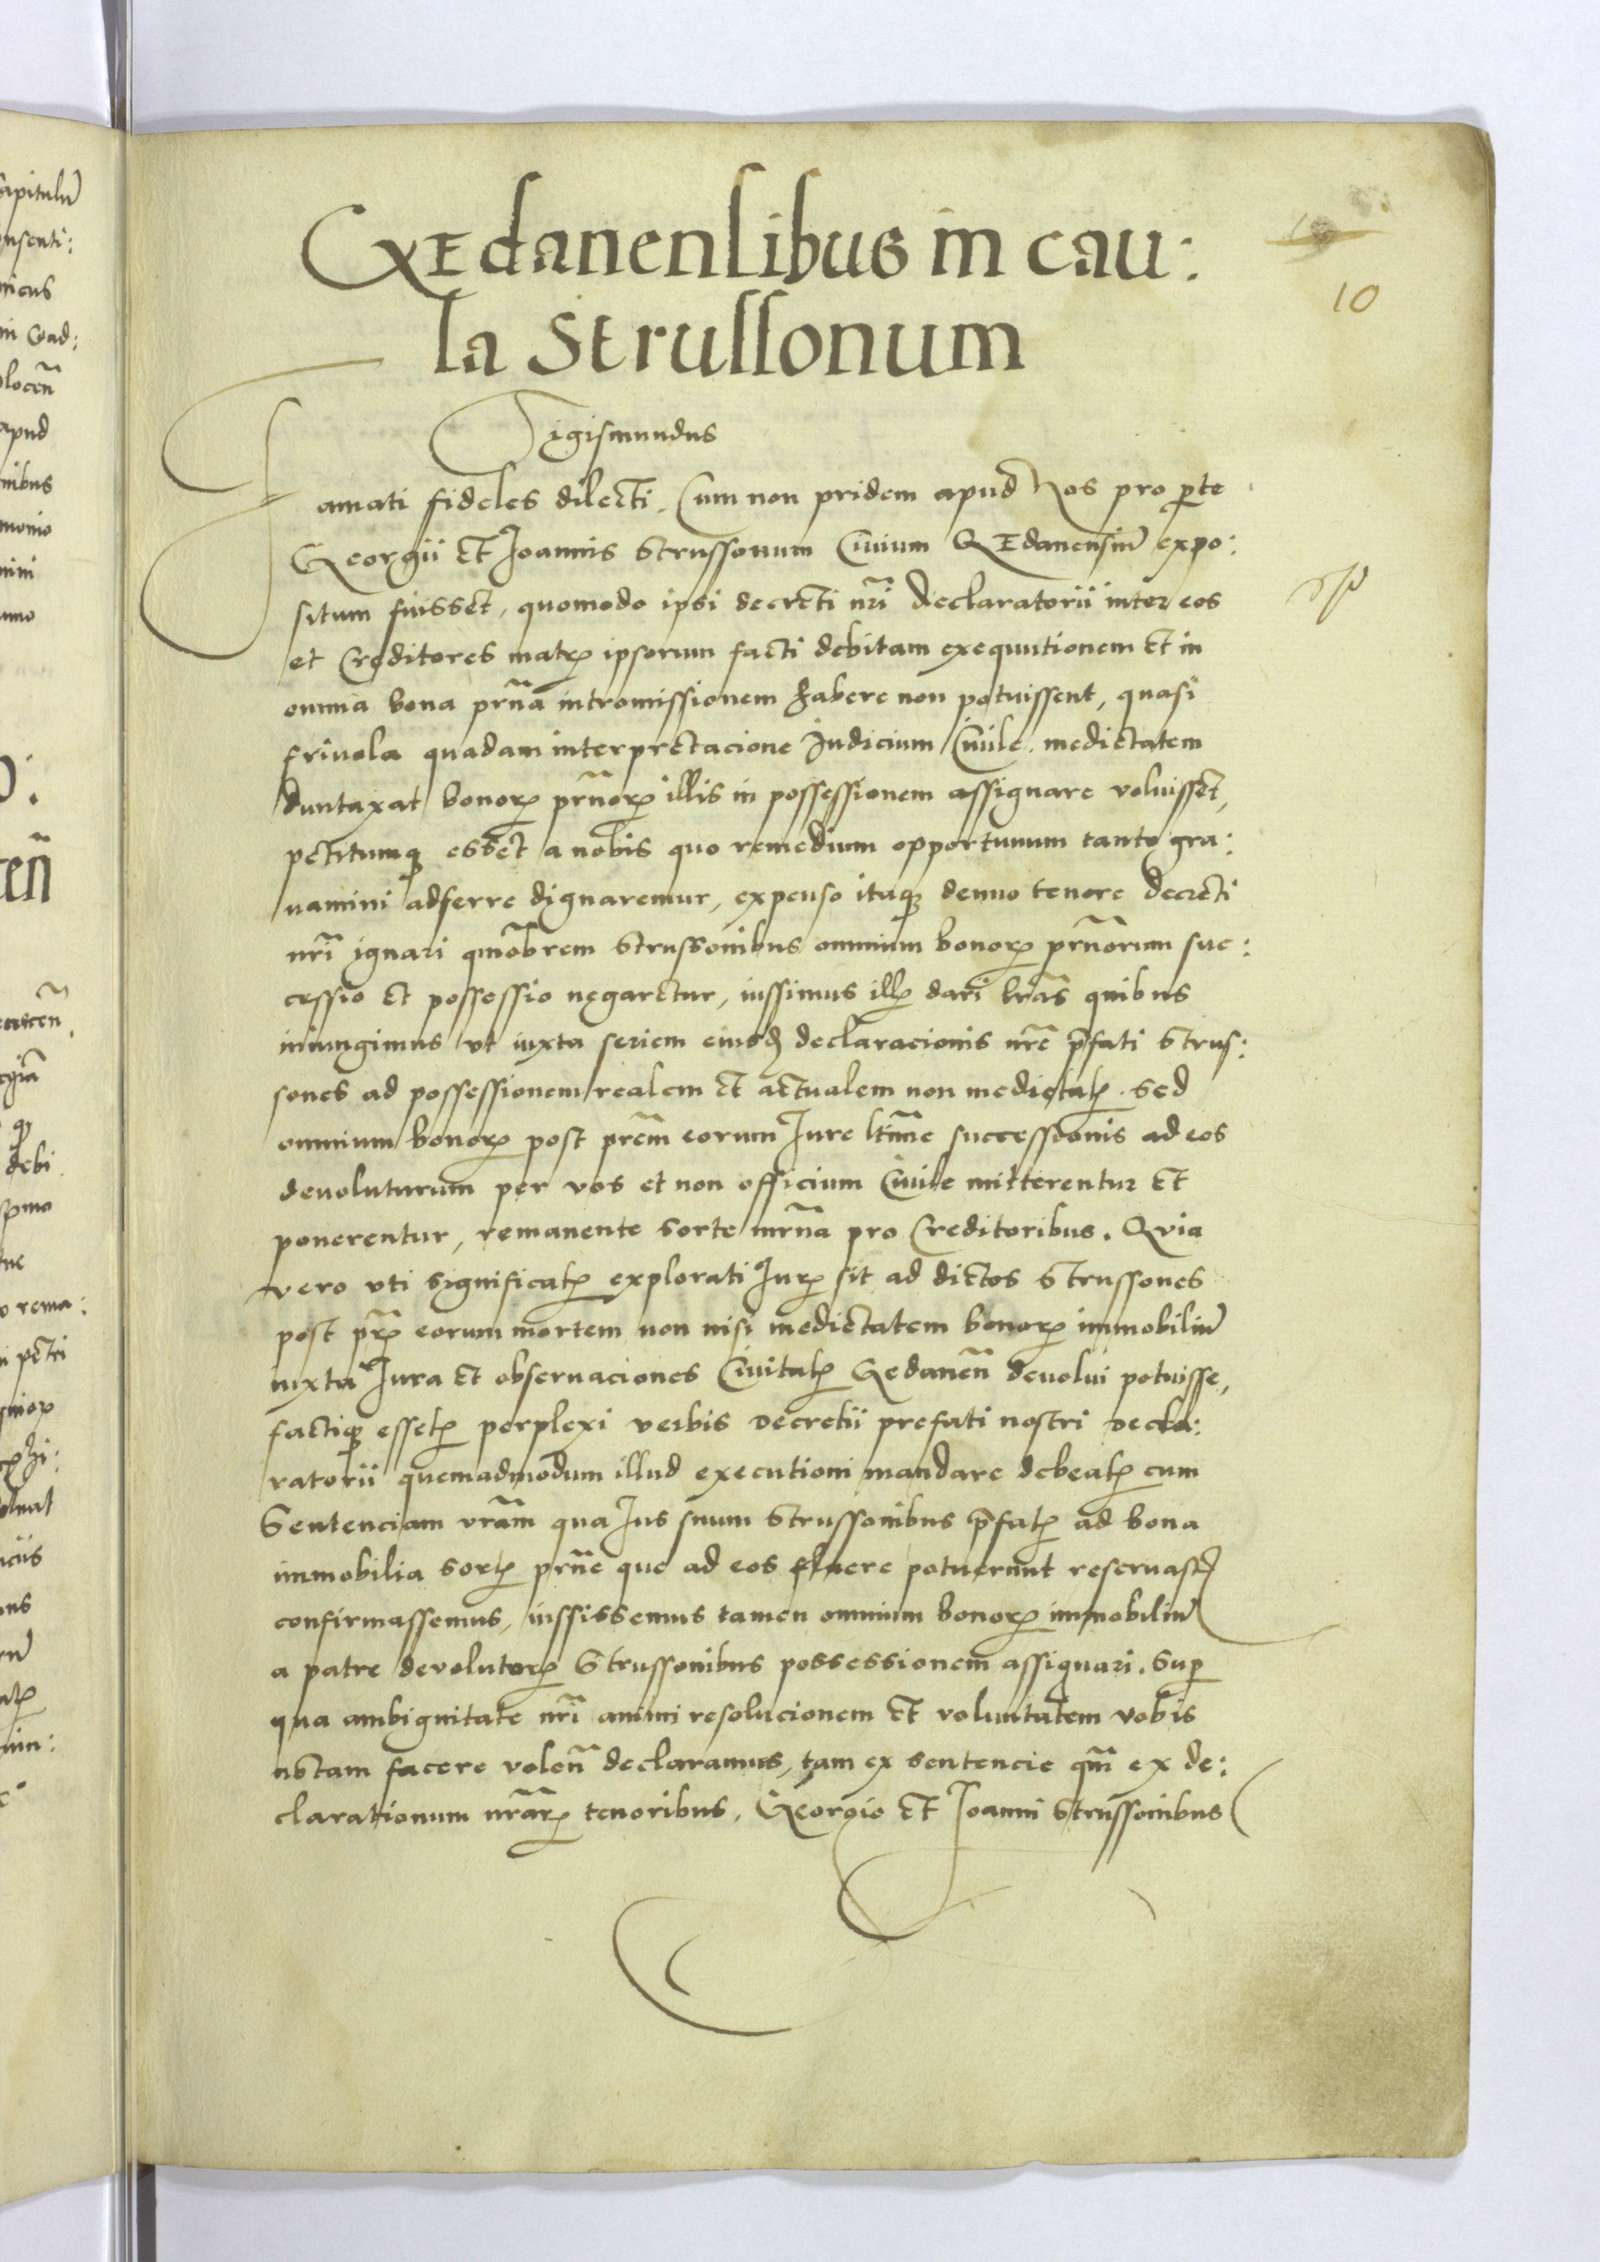 GEdanensibus in cau:
sa Strussonum
10
Sigismundus
Famati fideles dilecti. Cum non pridem apud Nos pro pte
Georgii et Joannis Strussonum Civium GEdanensiū expo:
situm fuisset, quomodo ipsi decreti nr̃i declaratorii inter eos
et Creditores matrꝭ ipsorum facti debitam exequutionem et in
omnia bona prñа intromissionem habere non potuissent, quasi
frivola quadam interpretacione Judicium Civile, medietatem
duntaxat bonorꝝ prñorꝝ illis in possessionem assignare voluisset,
petitumqꝫ esset a nobis quo remedium opportunum tanto gra:
vamini adferre dignaremur, expenso itaqꝫ denuo tenore decreti
nr̃i ignari qmõbrem Strussonibus omnium bonorꝝ prñorum suc:
cessio et possessio negaretur, iussimus illꝭ dari lrãs quibus
iniungimus ut iuxta seriem eiusdꝫ declaracionis nrẽ p̃fati Strus:
sones ad possessionem realem et actualem non medietatꝭ. sed
omnium bonorꝝ post prẽm eorum Jure ltĩme successionis ad eos
devoluturum per vos et non officium Civile mitterentur et
ponerentur, remanente sorte mrñа pro Creditoribus. Qvia
vero uti significatꝭ explorati Jurꝭ sit ad dictos Strussones
post pr̃ꝭ eorum mortem non nisi medietatem bonorꝝ immobiliū
iuxta Jura et observaciones Civitatꝭ Gedanen̄ devolvi potuisse,
factiqꝫ essetꝭ perplexi verbis decretii prefati nostri decla:
ratorii quemadmodum illud executioni mandare debeatꝭ cum
Sentenciam vrãm qua Jus suum Strussonibus p̃fatꝭ ad bona
immobilia sortꝭ prñe que ad eos fluere potuerunt reservastꝭ
confirmassemus, iussissemus tamen omnium bonorꝝ immobiliū
a patre devolutorꝝ Strussonibus possessionem assignari. Sup
qua ambiguitate nr̃i animi resolucionem et voluntatem vobis
notam facere volen̄ declaramus, tam ex sentencie qm̃ ex de:
clarationum nrãrꝝ tenoribus, Georgio et Joanni Strussonibus